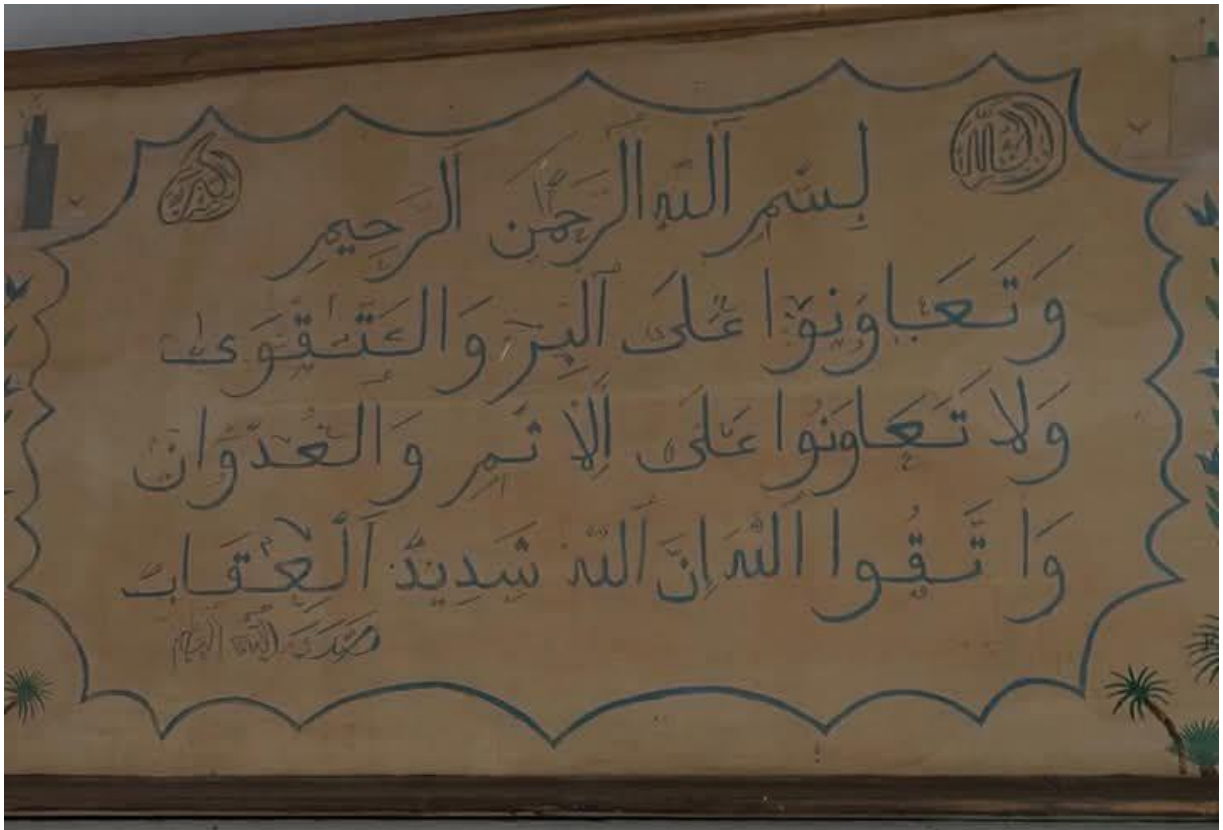 بِسْمِ اللَّهِ الرَّحْمَٰنِ الرَّحِيمِ
وَتَعَاوَنُوا عَلَى الْبِرِّ وَالتَّقْوَىٰ
وَلَا تَعَاوَنُوا عَلَى الْإِثْمِ وَالْعُدْوَانِ
وَاتَّقُوا اللَّهَ إِنَّ اللَّهَ شَدِيدُ الْعِقَابِ
صدق الله العظيم